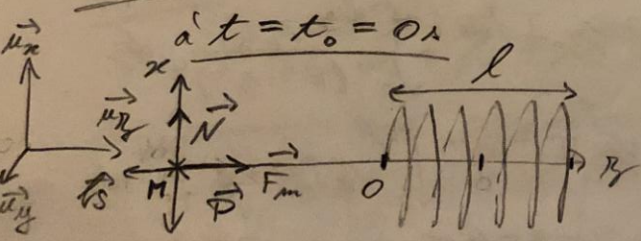 à t = t₀ = 0s
l
x
μx
μz
μy
N
fs
M
P
Fm
O
z